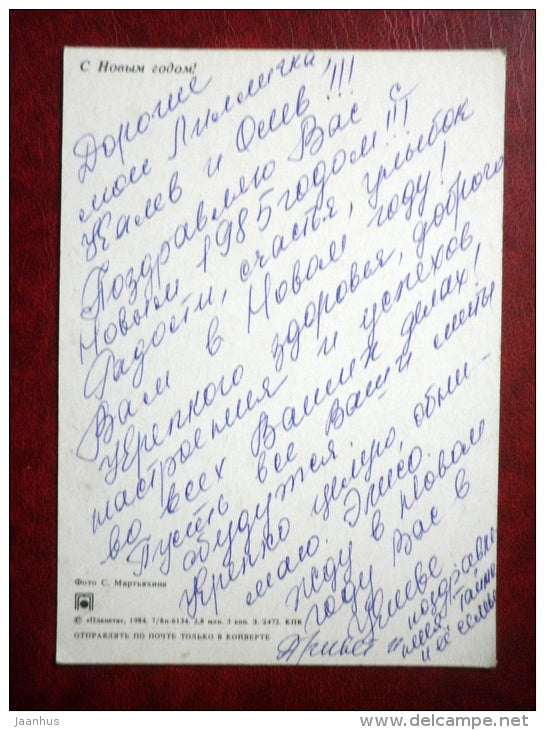 С Новым годом!
Дорогие
мои Лилличка,
Калев и Олев!!!
Поздравляю Вас с
Новым 1985 годом!!!
Радости, счастья, улыбок
Вам в Новом году!
Крепкого здоровья, доброго
настроения и успехов
во всех Ваших делах!
Пусть все Ваши мечты
сбудутся.
Крепко целую, обни-
маю. Эчисо.
Жду в Новом
году Вас в
Киеве.
Привет и поздравле-
ния Тайне
и её семье
Фото С. Мартьяхина
© «Планета», 1984. 7/8о-6134. 2,8 млн. 3 коп. З. 2472. КПК
ОТПРАВЛЯТЬ ПО ПОЧТЕ ТОЛЬКО В КОНВЕРТЕ
Jaanhus
www.delcampe.net